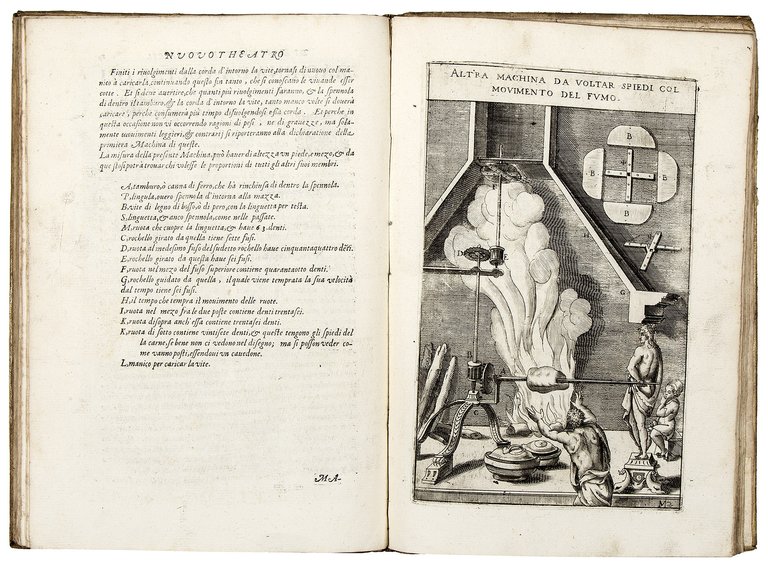 NVOVO THEATRO
Finiti i riuolgimenti dalla corda d'intorno la vite, tornasi di nuouo col ma-
nico à caricarla, continuando questo fin tanto, che si conoscano le viuande esser
cotte. Et si deue auertire, che quanti più riuolgimenti faranno, & la spennola
di dentro il tamburo, & la corda d'intorno la vite, tanto manco volte si douerà
caricare, perche consumerà più tempo disuolgendosi essa corda. Et perche in
questa occasione non vi occorrendo ragioni di pesi, ne di grauezze, ma sola-
mente mouimenti leggieri, & contrarij si riporteranno alla dichiaratione della
primiera Machina di queste.
La misura della presente Machina, può hauer di altezza vn piede, e mezo, & da
questo si potrà trouar chi volesse le proportioni di tutti gli altri suoi membri.
A, tamburo, ò canna di ferro, che hà rinchiusa di dentro la spennola.
P, lingula, ouero spennola d'intorno alla mazza.
B, vite di legno di bosso, ò di pero, con la linguetta per testa.
S, linguetta, & anco spennola, come nelle passate.
M, ruota che cuopre la linguetta, & haue 63. denti.
C, rochello girato da quella tiene sette fusi.
D, ruota al medesimo fuso del sudetto rochello haue cinquantaquattro dēti.
E, rochello girato da questa haue sei fusi.
F, ruota nel mezo del fuso superiore contiene quarantaotto denti.
G, rochello guidato da quella, il quale viene temprata la sua velocità
dal tempo tiene sei fusi.
H, il tempo che tempra il mouimento delle ruote.
I, ruota nel mezo fra le due poste contiene denti trentasei.
K, ruota di sopra anch'essa contiene trentasei denti.
K, ruota di sotto contiene vintisete denti, & queste tengono gli spiedi del
la carne, se bene non ci vedono nel disegno; ma si posson veder co-
me vanno posti, essendoui vn cauedone.
L, manico per caricar la vite.
MA-
ALTRA MACHINA DA VOLTAR SPIEDI COL
MOVIMENTO DEL FVMO.
B
B
B
B
D
E
G
C